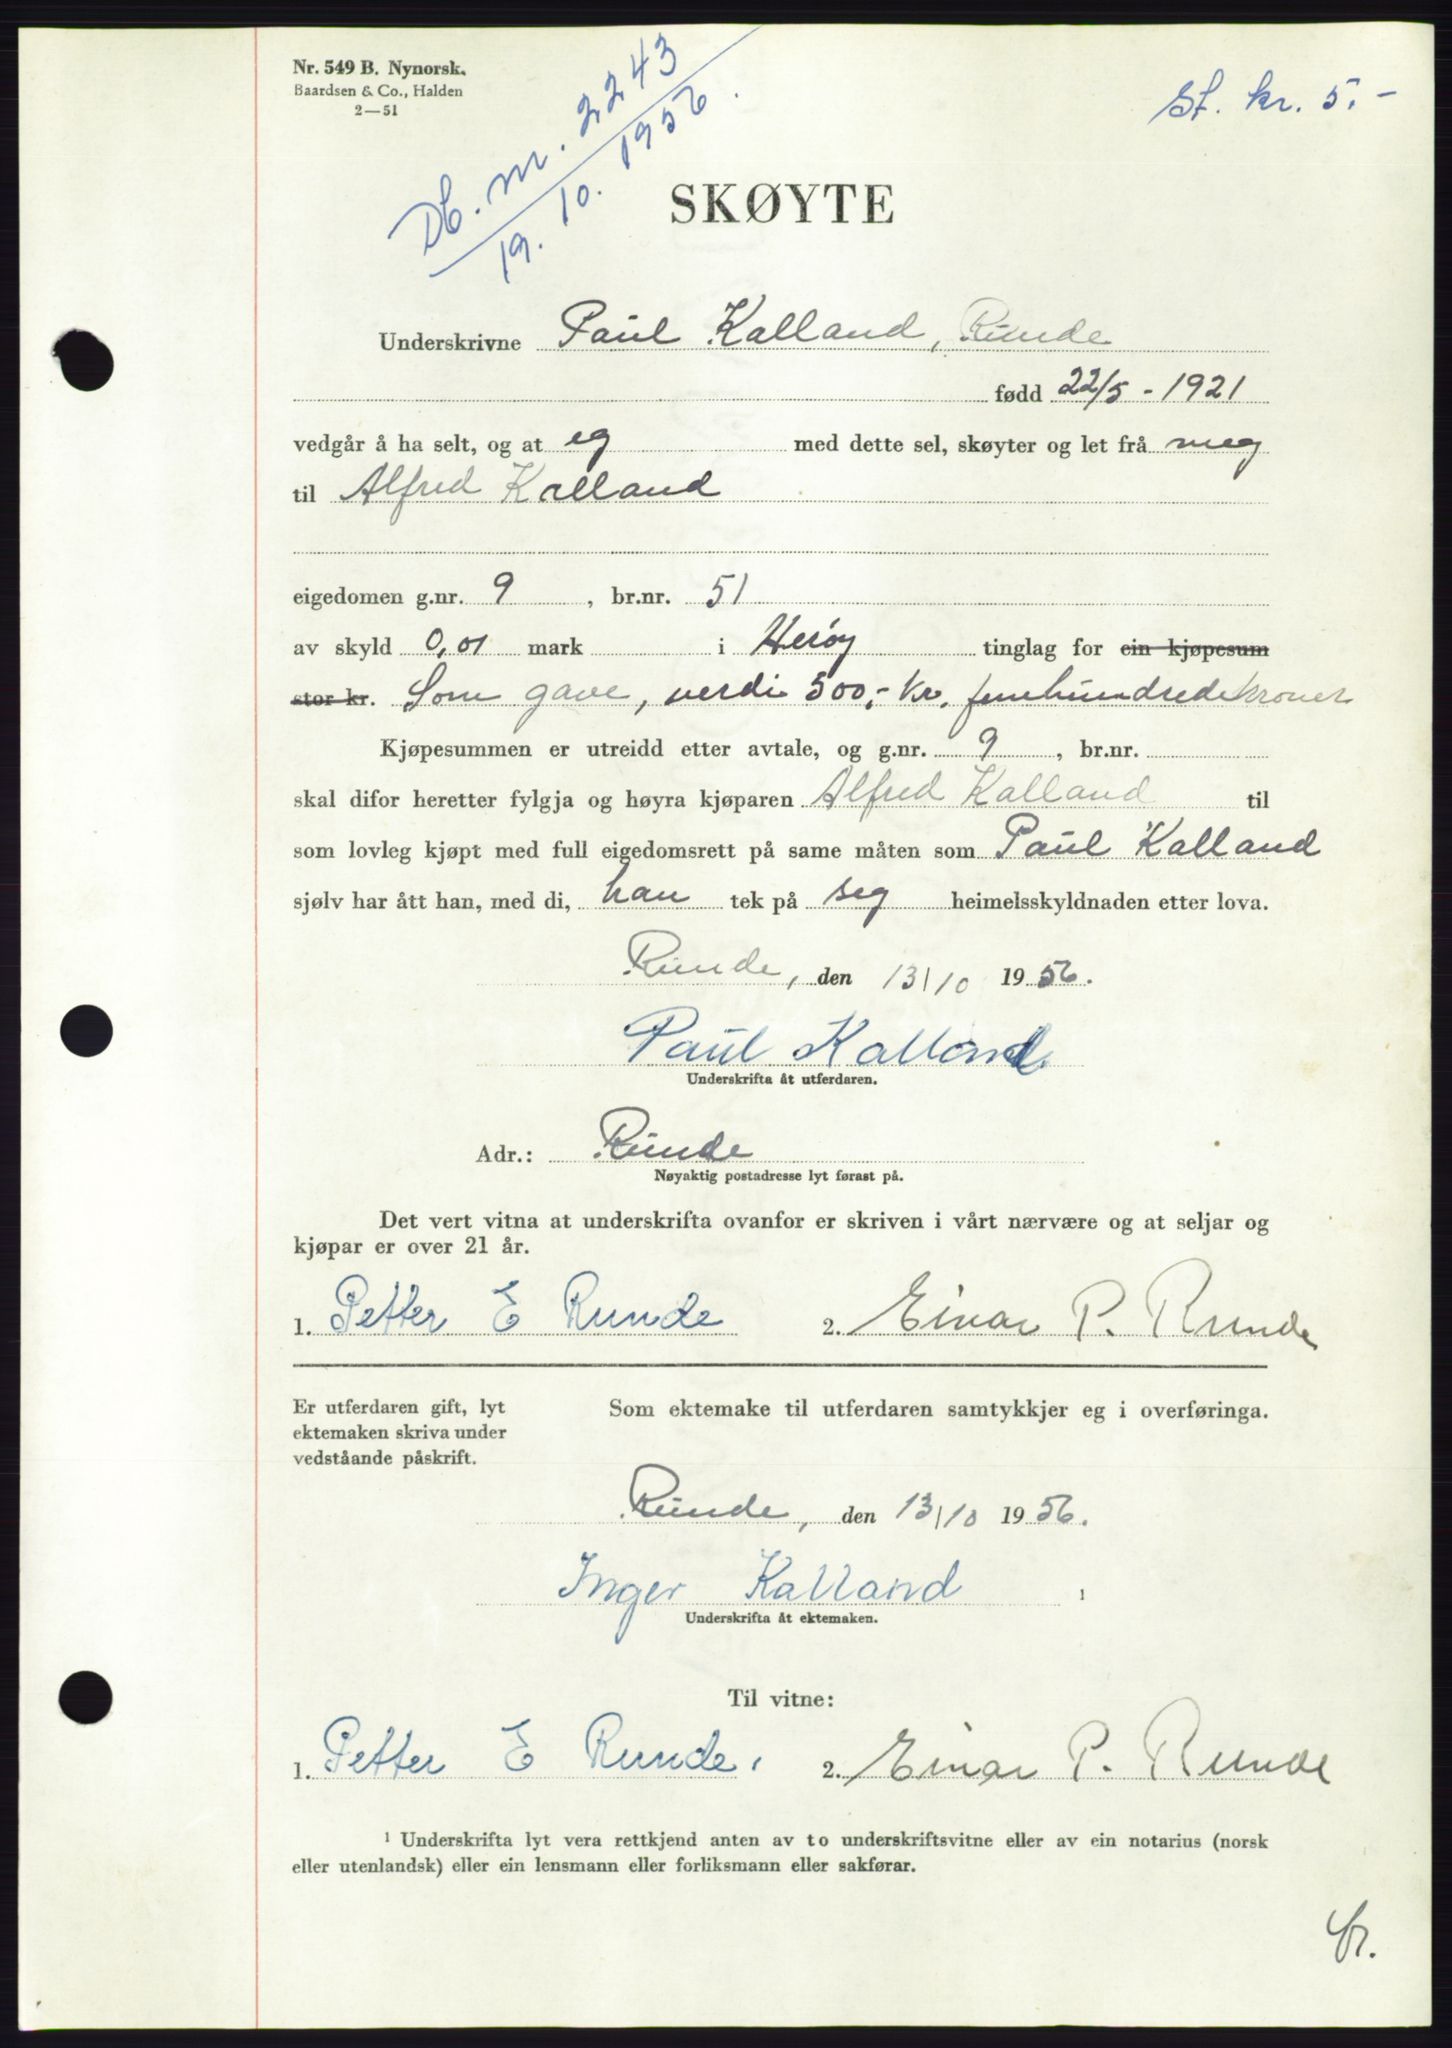 Nr. 549 B. Nynorsk.
Baardsen & Co., Halden
2—51
Db. nr. 2243
19. 10. 1956.
St. kr. 5.-
SKØYTE
Underskrivne Paul Kalland, Runde
fødd 22/5 - 1921
vedgår å ha selt, og at eg med dette sel, skøyter og let frå meg
til Alfred Kalland
eigedomen g.nr. 9 , br.nr. 51
av skyld 0,01 mark i Herøy tinglag for ein kjøpesum
stor kr. Som gave, verdi 500,- kr. femhundrede kroner
Kjøpesummen er utreidd etter avtale, og g.nr. 9 , br.nr.
skal difor heretter fylgja og høyra kjøparen Alfred Kalland til
som lovleg kjøpt med full eigedomsrett på same måten som Paul Kalland
sjølv har ått han, med di, han tek på seg heimelsskyldnaden etter lova.
Runde, den 13/10 1956.
Paul Kalland.
Underskrifta åt utferdaren.
Adr.: Runde
Nøyaktig postadresse lyt førast på.
Det vert vitna at underskrifta ovanfor er skriven i vårt nærvære og at seljar og
kjøpar er over 21 år.
1. Petter E Runde 2. Einar P. Runde
Er utferdaren gift, lyt
ektemaken skriva under
vedståande påskrift.
Som ektemake til utferdaren samtykkjer eg i overføringa.
Runde, den 13/10 1956.
Inger Kalland 1
Underskrifta åt ektemaken.
Til vitne:
1. Petter E Runde. 2. Einar P. Runde
1 Underskrifta lyt vera rettkjend anten av to underskriftsvitne eller av ein notarius (norsk
eller utenlandsk) eller ein lensmann eller forliksmann eller sakførar.